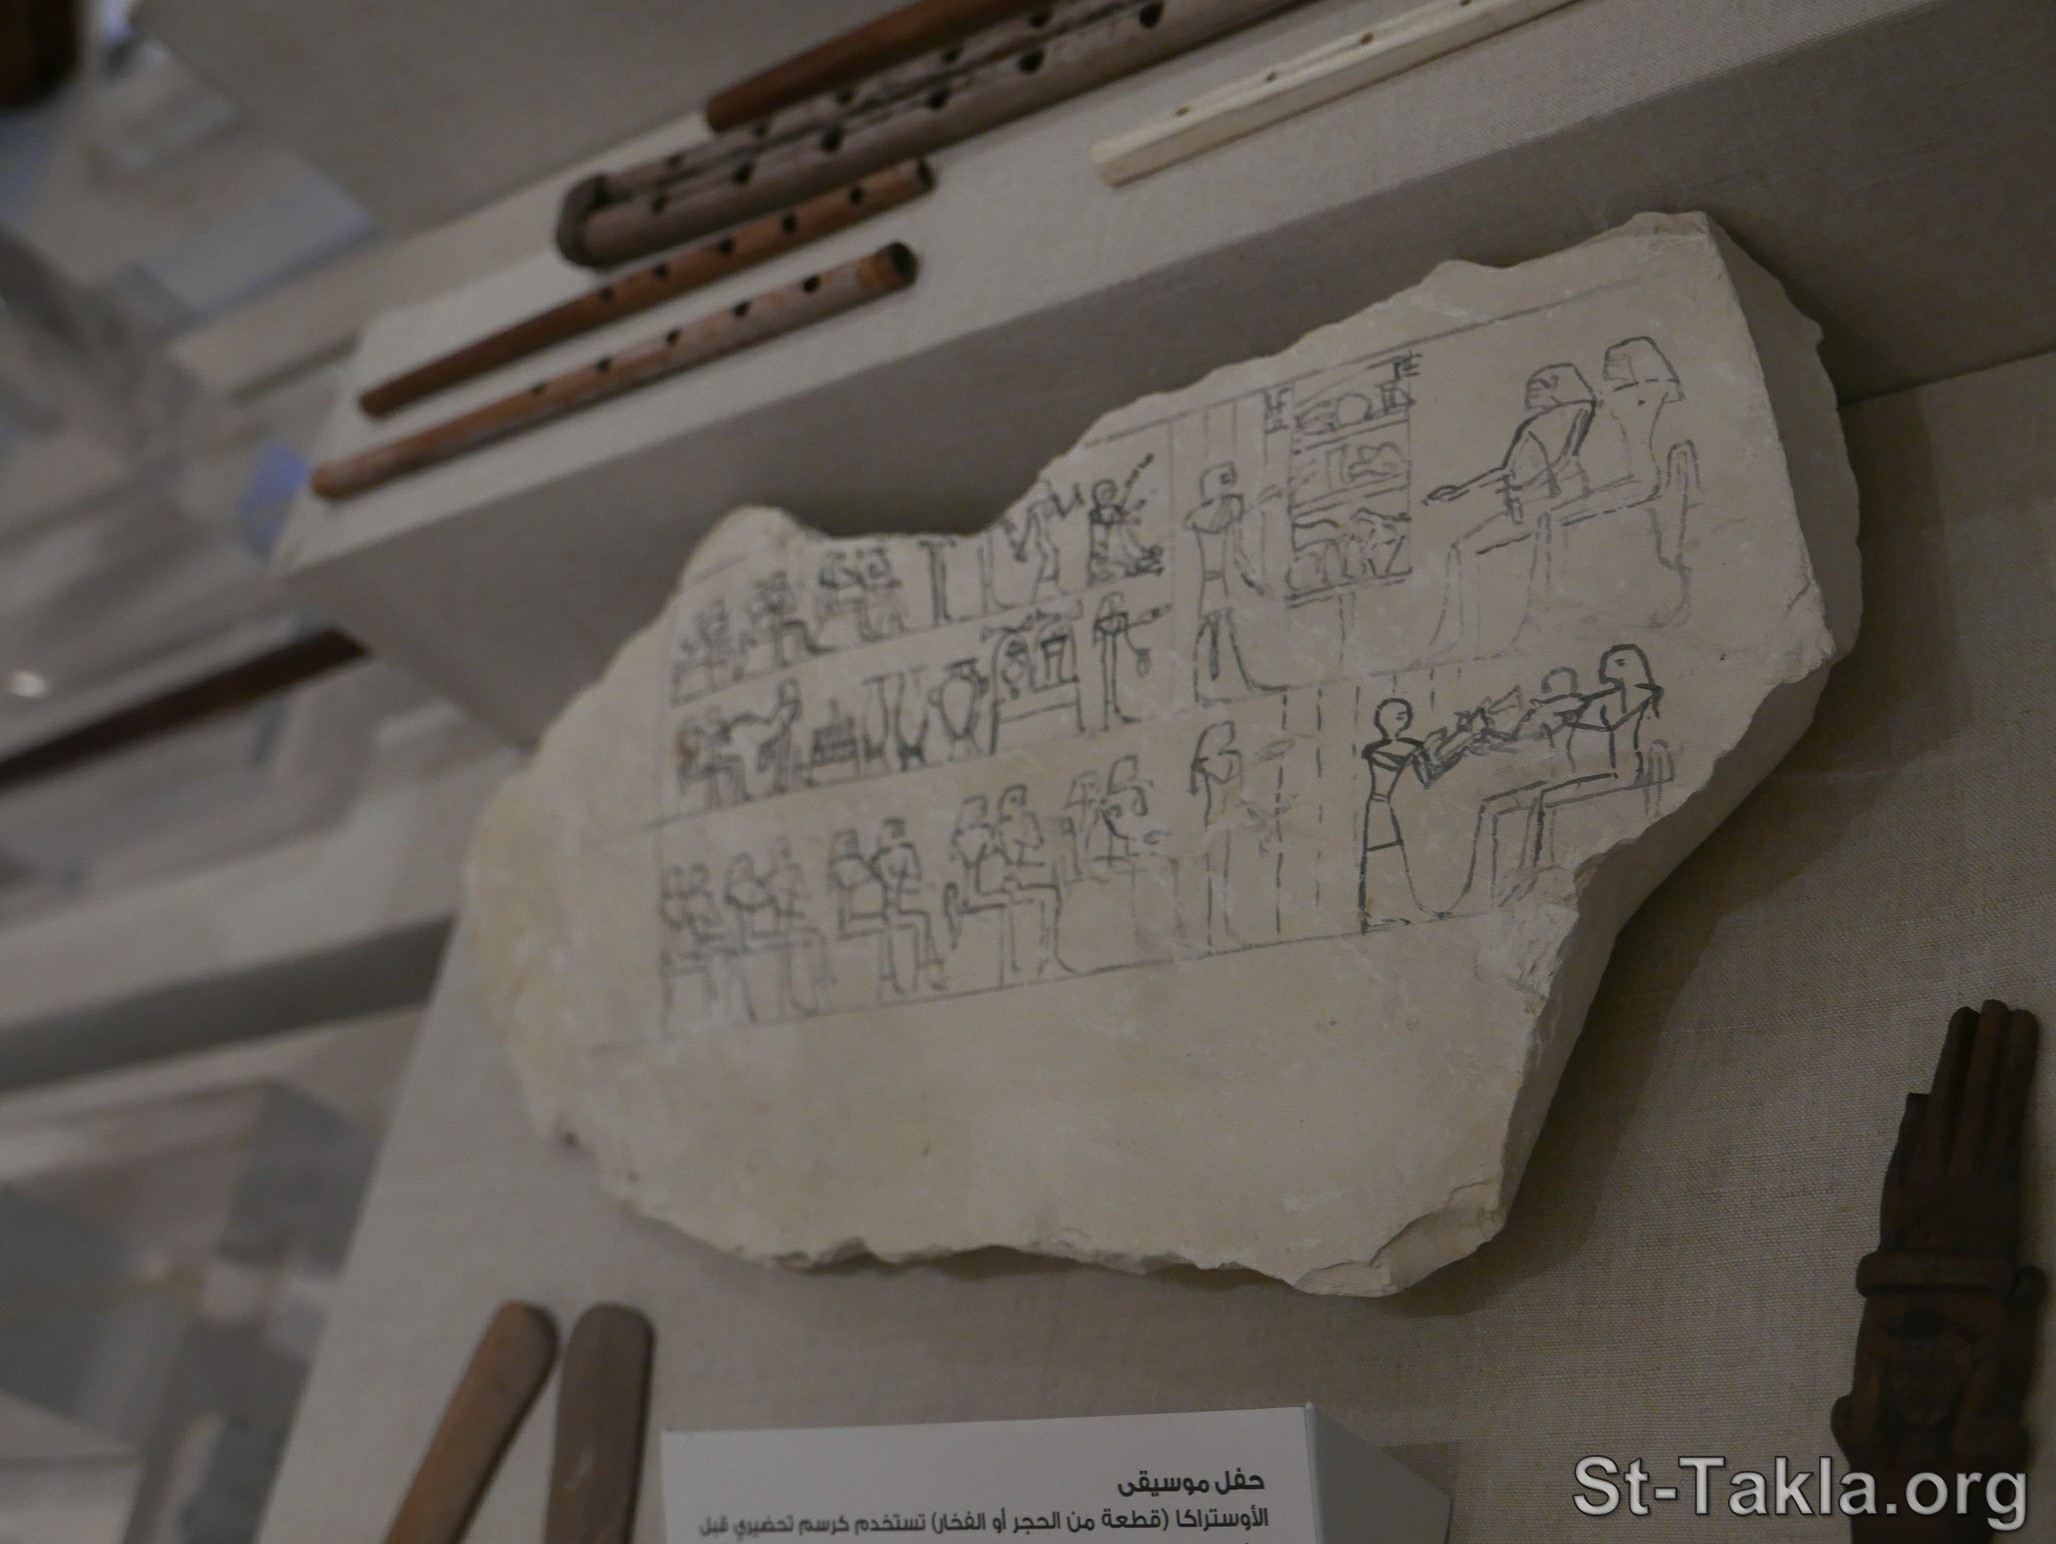 حفل موسيقى
الأوستراكا (قطعة من الحجر أو الفخار) تستخدم كرسم تحضيري قبل
St-Takla.org